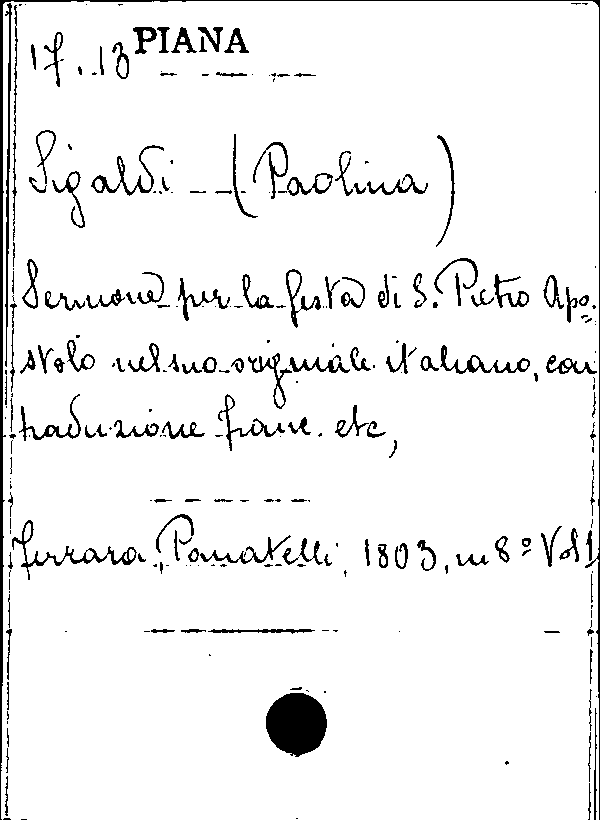 17.13 PIANA
Sigaldi (Paolina)
Sermone per la festa di S. Pietro Apo=
stolo nel suo originale italiano, con
traduzione franc. etc,
Ferrara, Pomatelli, 1803, in 8º Vol 1